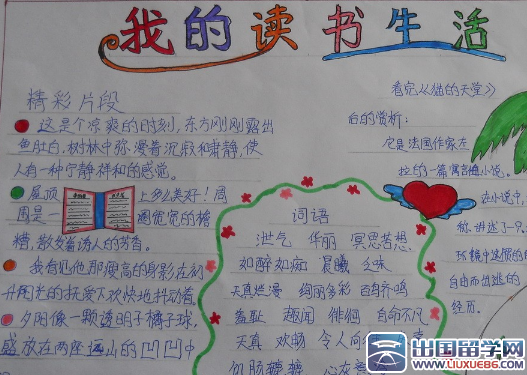 我的读书生活
精彩片段
这是个凉爽的时刻,东方刚刚露出
鱼肚白,树林中弥漫着沉寂和肃静,使
人有一种宁静祥和的感觉。
屋顶上多么美好!周
围是一圈宽宽的檐
糟,散发着诱人的芳香。
我看见他那瘦高的身影在初
升阳光的抚爱下欢快地抖动着
夕阳像一颗透明子橘子球,
盛放在两座远山的凹凹中
词语
泄气 华丽 冥思苦想
如醉如痴 晨曦 乏味
天真烂漫 绚丽多彩 百鸟齐鸣
羞耻 趣闻 徘徊 自命不凡
天真 欢畅 令人向
饥肠辘辘 心灰
看完《从猫的天堂》
后的赏析:
它是法国作家左
拉的一篇寓言性小说。
在小说中,
称,讲述了一只
环境中这惯的
自由而出逃的
经历。
出国留学网
WWW.LIUXUE86.COM